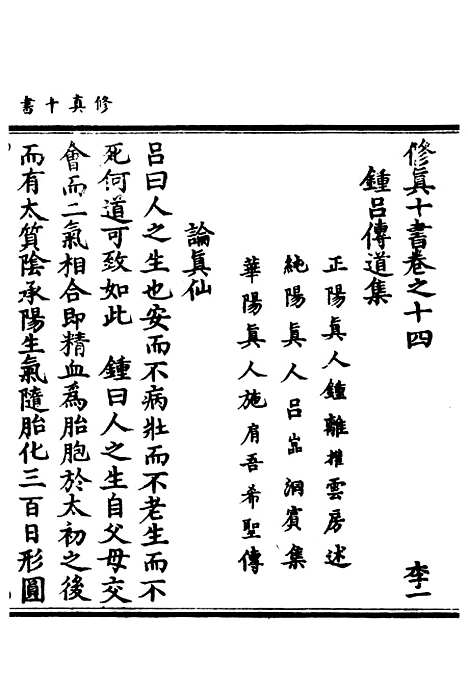 修真十書
修真十書卷之十四　李一
鍾呂傳道集
正陽真人鍾離權雲房述
純陽真人呂嵓洞賓集
華陽真人施肩吾希聖傳
論真仙
呂曰人之生也安而不病壯而不老生而不
死何道可致如此　鍾曰人之生自父母交
會而二氣相合即精血為胎胞於太初之後
而有太質陰承陽生氣隨胎化三百日形圓